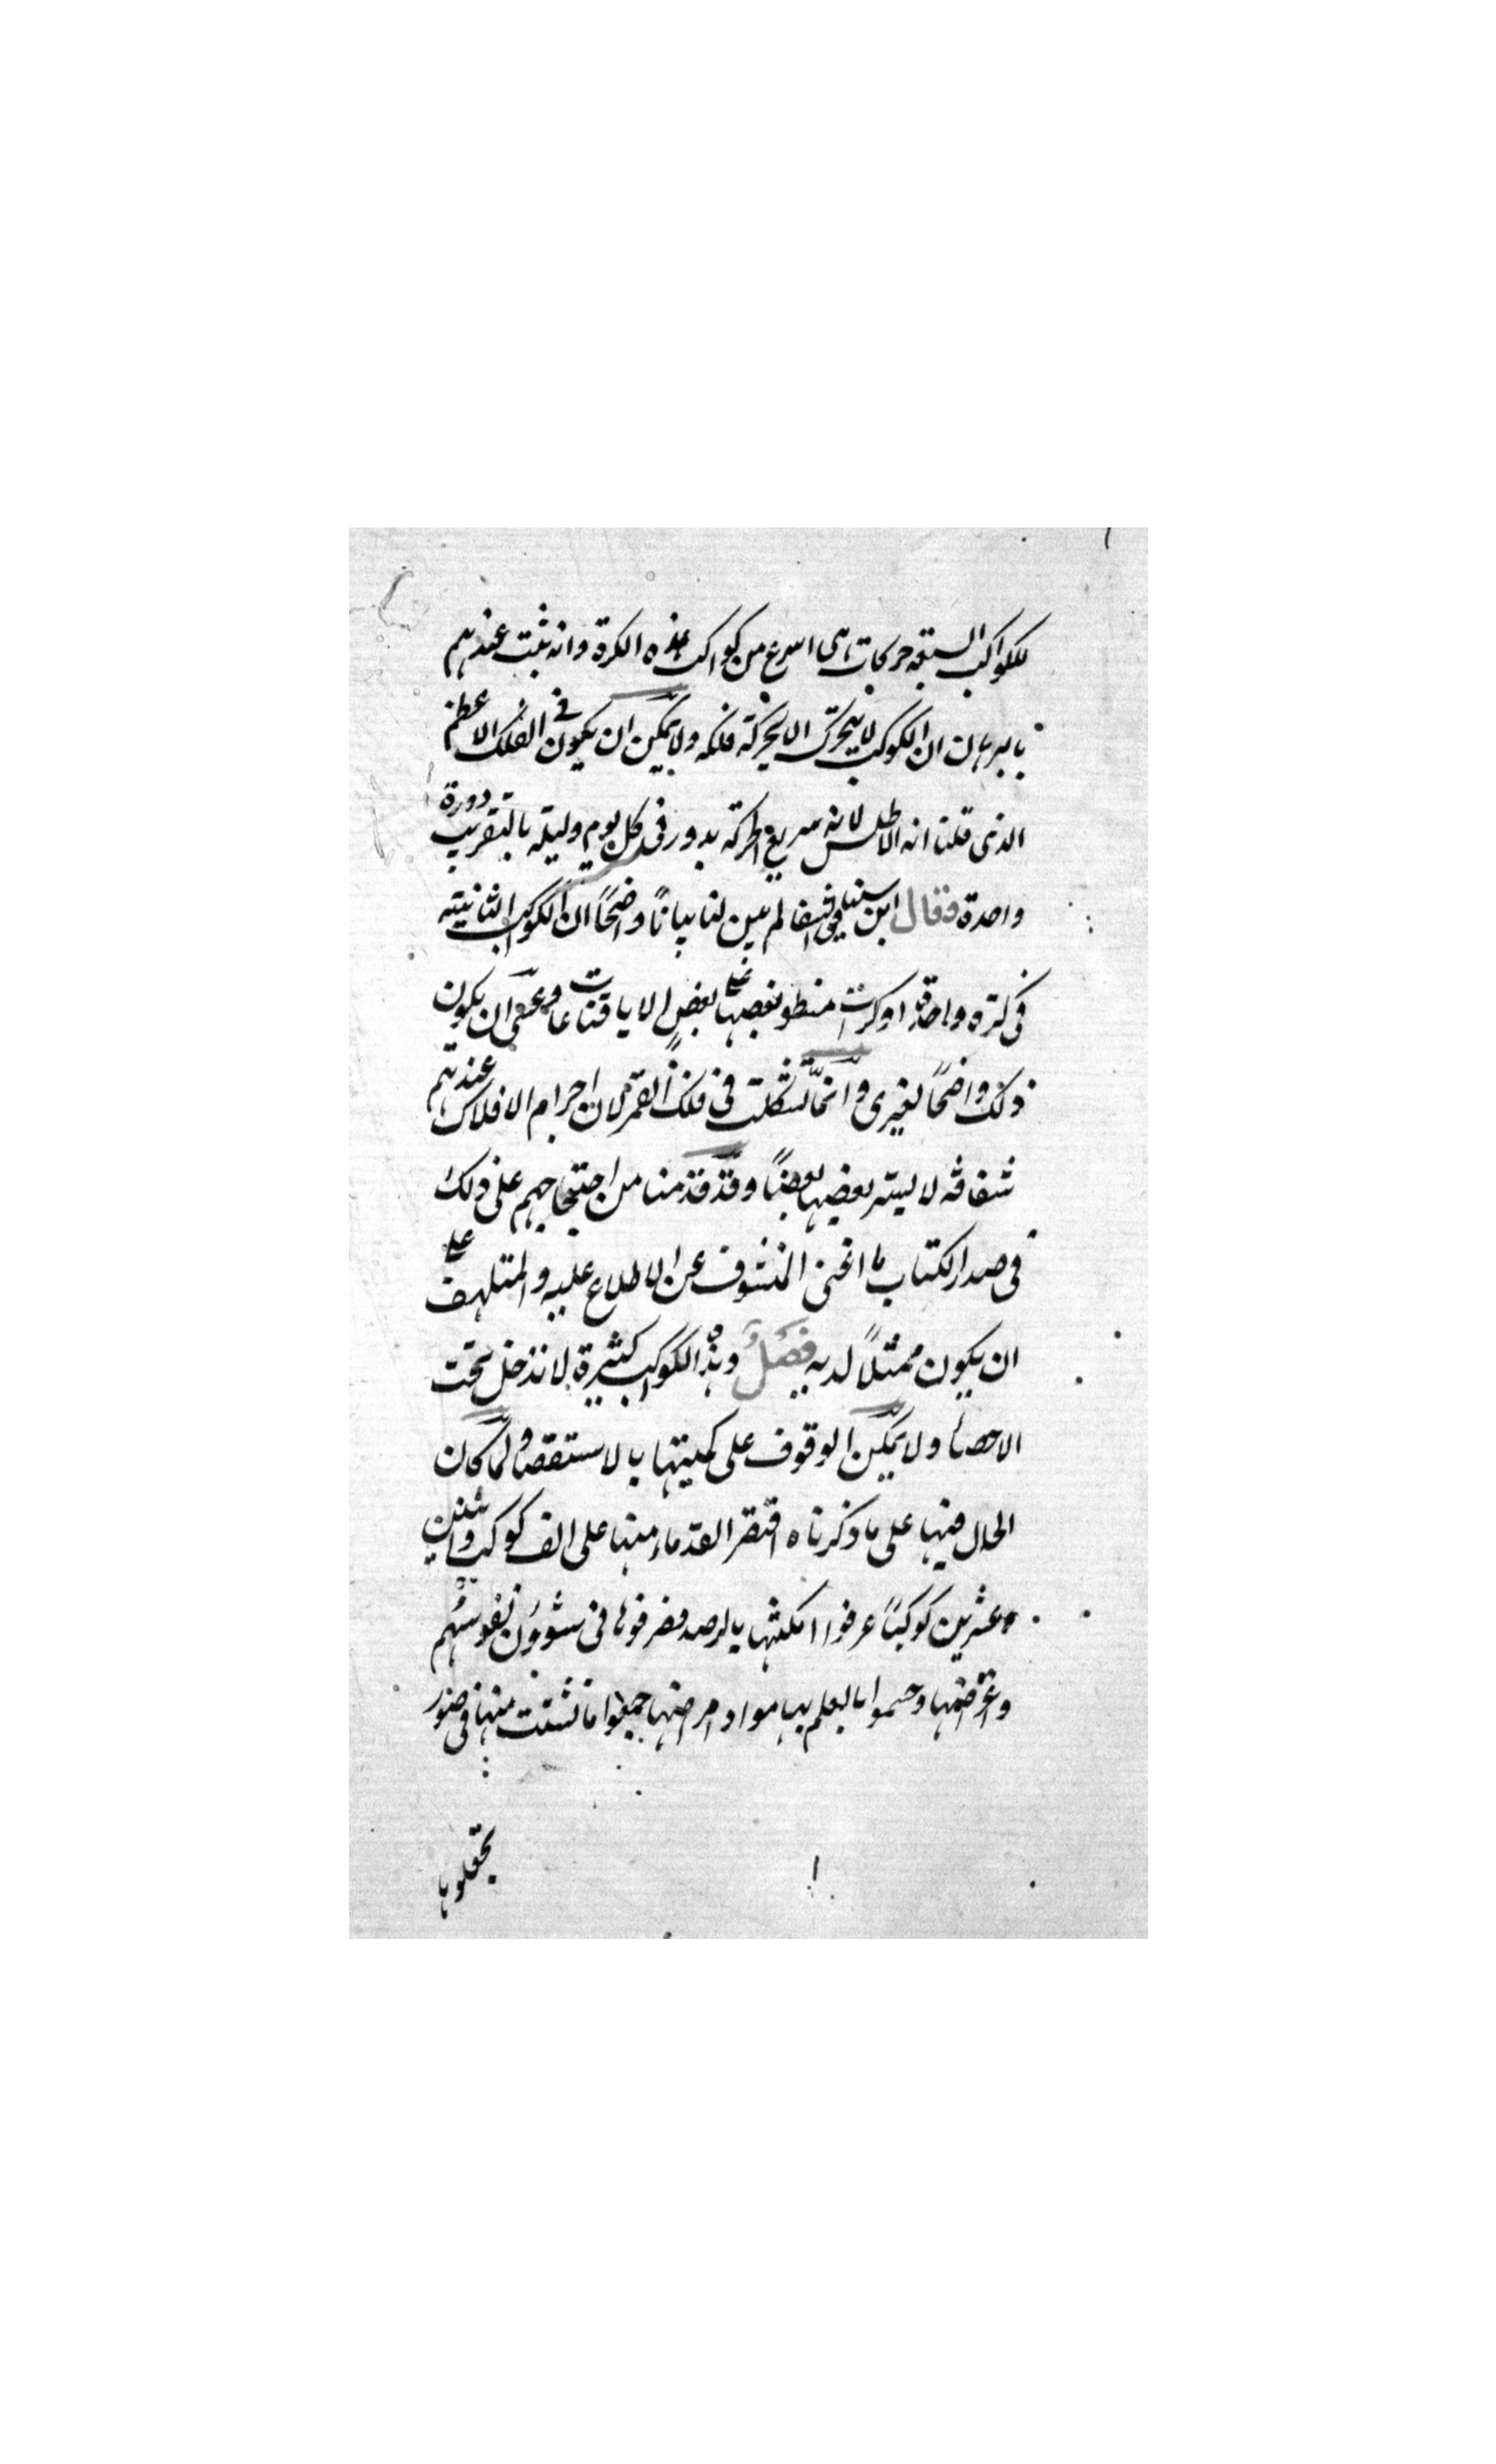 للكواكب السبعة حركات هى اسرع من كواكب هذه الكرة وانه ثبت عندهم
بالبرهان ان الكوكب لا يتحرك الا بحركة فلكه ولا يمكن ان يكون فى الفلك الاعظم
الذى قلنا انه الاطلس لانه سريع الحركة يدور فى كل يوم وليلة بالتقريب دورة
واحدة فقال ابن سينا فى الشفا لم يتبين لنا بيانًا واضحًا ان الكواكب الثابتة
فى كرة واحدة او كرات منطو بعضها على بعض الا باقناعات وعسى ان يكون
ذلك واضحًا لغيرى وانما تشكلت فى فلك القمر لان اجرام الافلاك عندهم
شفافة لا يستر بعضها بعضًا وقد قدمنا من احتجاجهم على ذلك
فى صدر الكتاب ما اغنى المتشوف عن الاطلاع عليه والمتلهف على
ان يكون ممثلاً لديه فصل وهذه الكواكب كثيرة لا تدخل تحت
الاحصاء ولا يمكن الوقوف على كميتها بالاستقصا ولما كان
الحال فيها على ما ذكرناه اقتصر القدماء منها على الف كوكب واثنين
وعشرين كوكبًا عرفوا امكنتها بالرصد فصرفوها فى شؤون نفوسهم
واغراضها وحسموا بالعلم بها مواد امراضها جمعوا ما تشتت منها فى صور